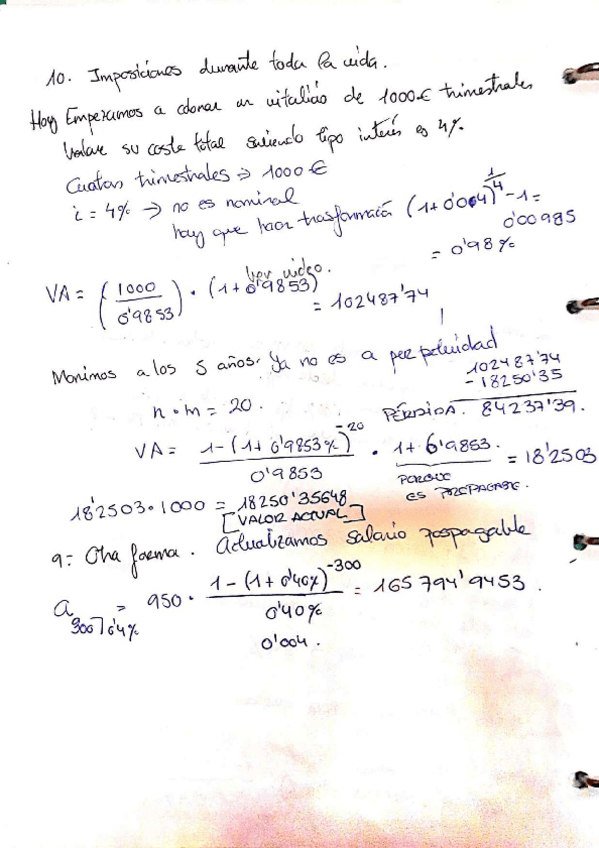 10. Imposiciones durante toda la vida.
Hoy Empezamos a abonar un vitalicio de 1000€ trimestrales
Valorar su coste total sabiendo tipo interés es 4%.
Cuotas trimestrales ⇒ 1000€
i = 4% → no es nominal
hay que hacer trasformación (1+0'004)^1/4 - 1 =
0'00985
= 0'98%
ver video.
VA = (1000 / 0'9853) · (1+0'9853) = 102487'74
Morimos a los 5 años. Ya no es a perpetuidad
102487'74
- 18250'35
n·m = 20. PÉRDIDA. 84237'39.
VA = 1-(1+0'9853%)^-20 / 0'9853 · 1+0'9853. = 18'2503
PORQUE
ES PREPAGABLE.
18'2503·1000 = 18250'35648
[VALOR ACTUAL]
9= Otra forma. Actualizamos salario pospagable
a 300⌉0'4% = 950 · 1-(1+0'40%)^-300 / 0'40% = 165794'9453.
0'004.